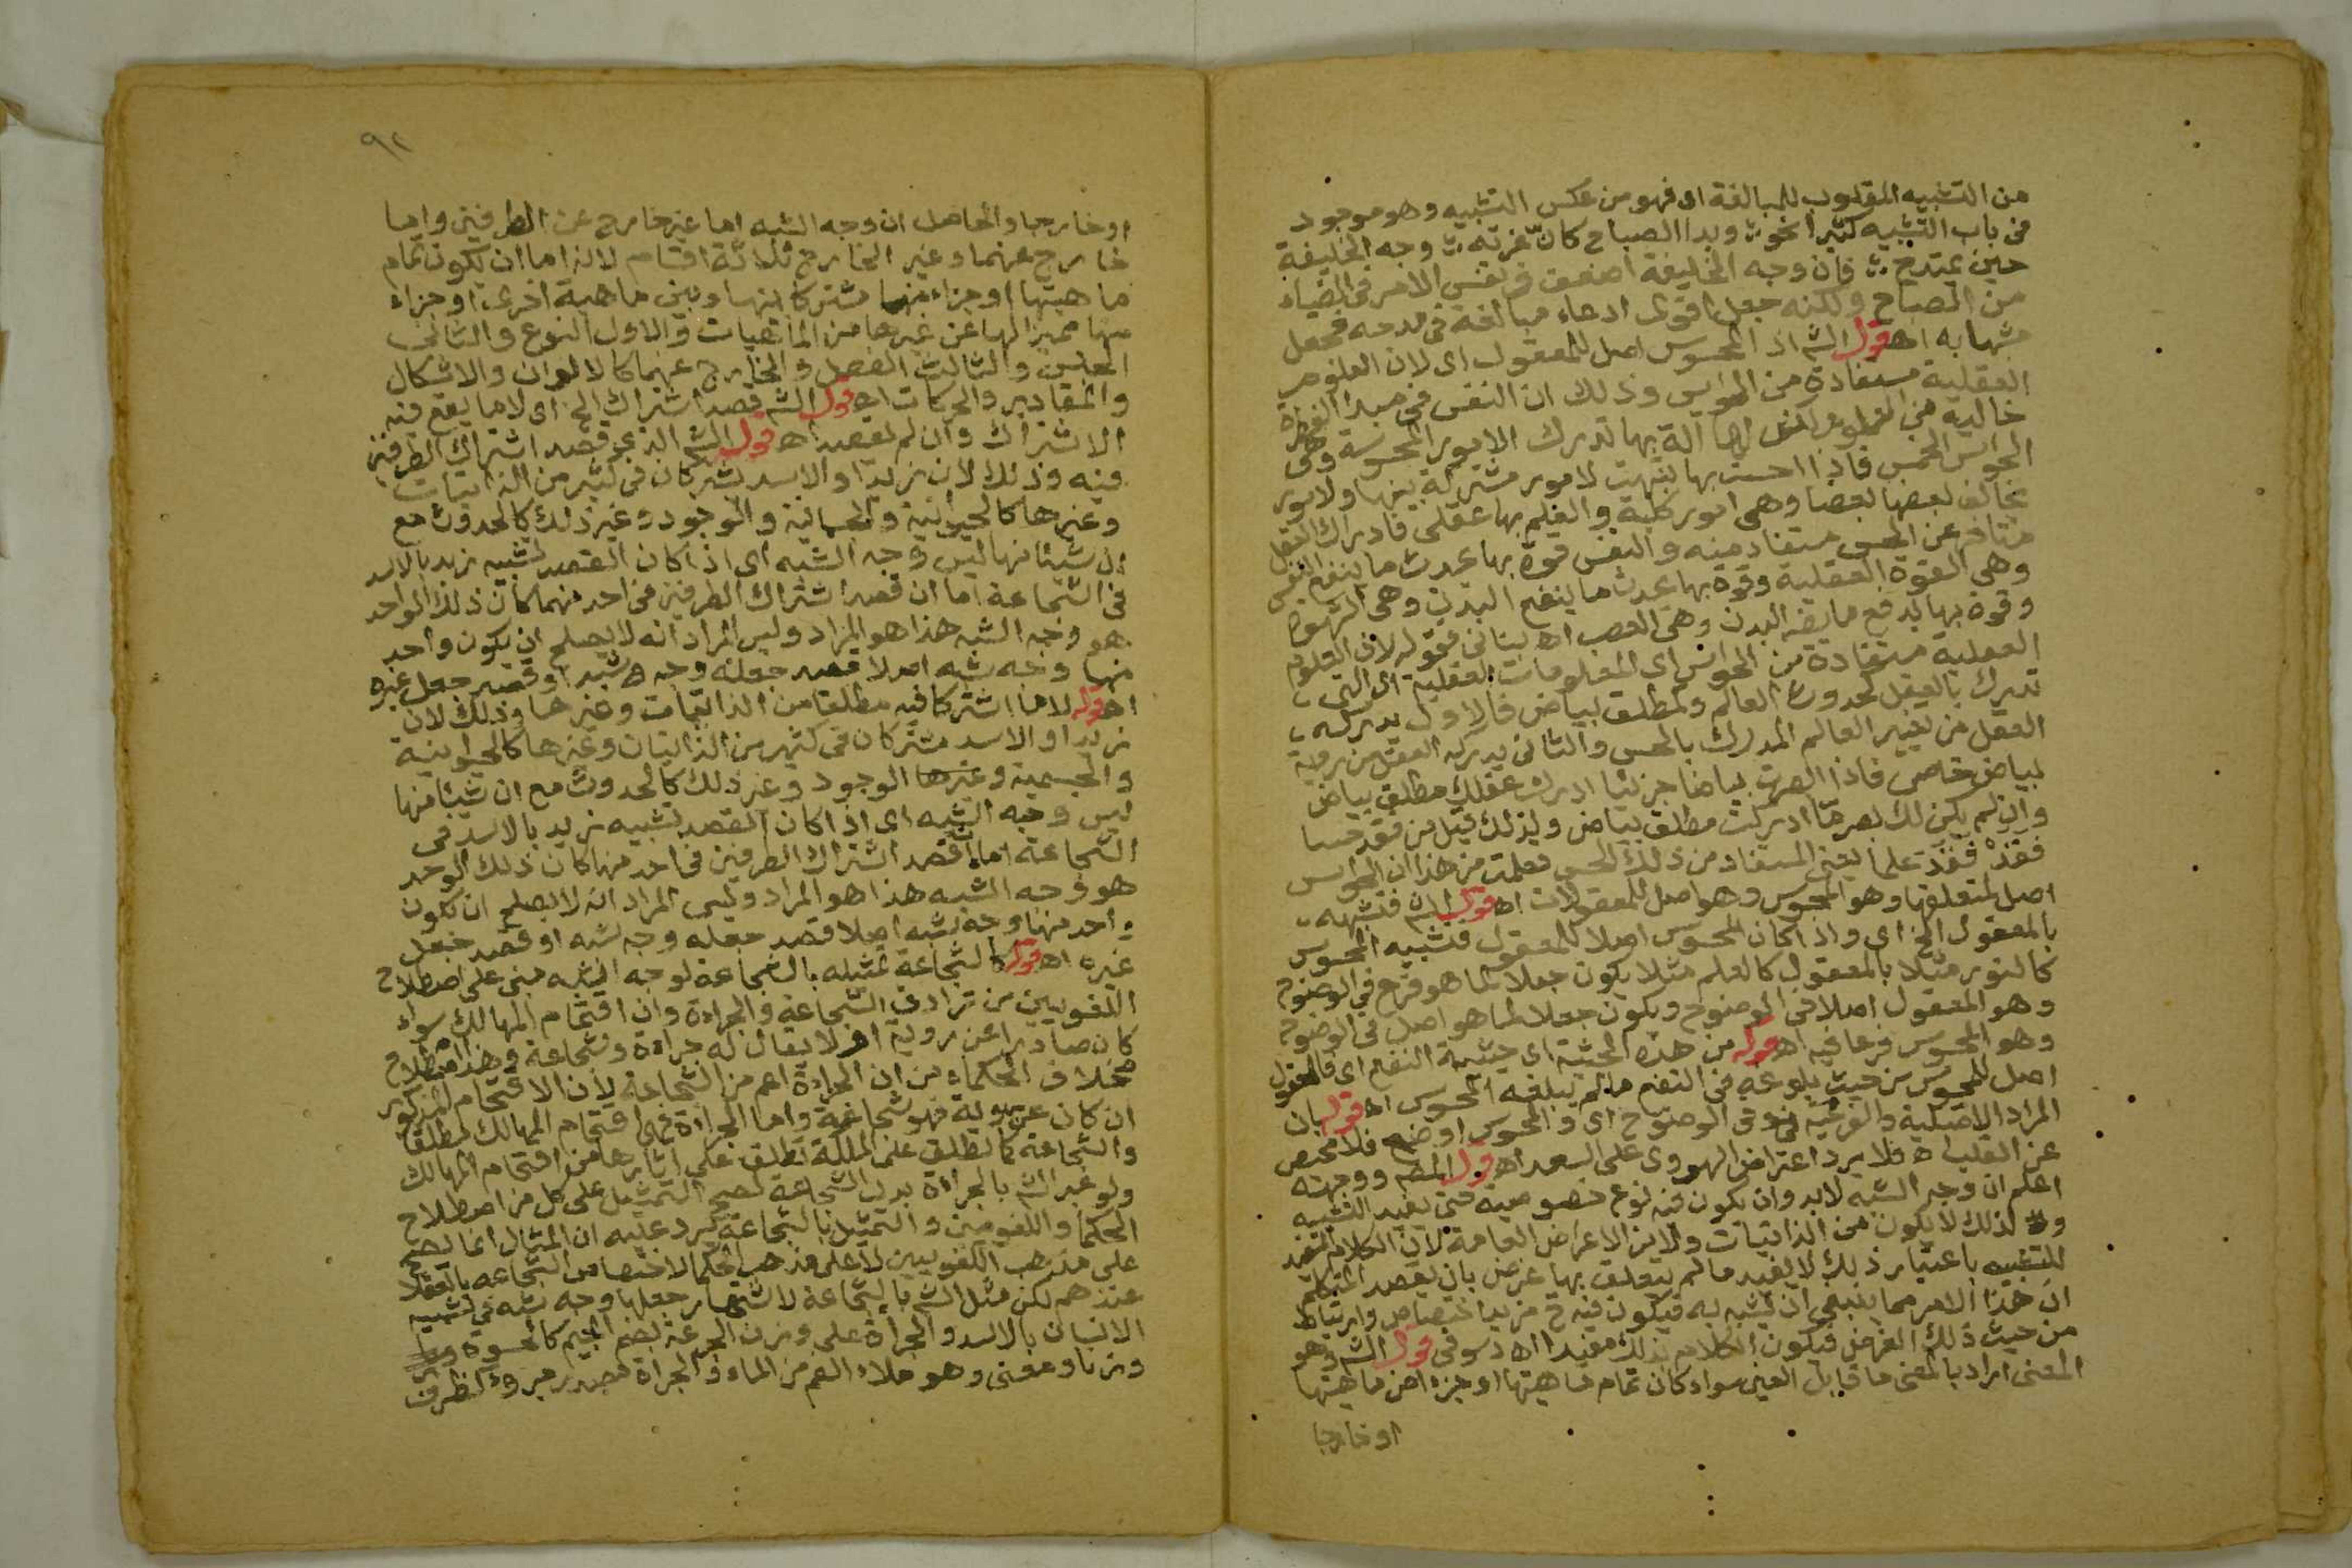 من التشبيه المقلوب للمبالغة اى فهو من عكس التشبيه وهو موجود
فى باب التشبيه كثيرا نحو وبدا الصباح كان غرته وجه الخليفة
حين يمتدح فان وجه الخليفة اضعف فى نفس الامر فى الضياء
من الصباح ولكنه جعل اقوى ادعاء مبالغة فى مدحه فجعل
مشبها به اه قول الشم اذ المحسوس اصل للمعقول اى لان العلوم
العقلية مستفادة من الحواس وذلك ان النفس فى مبدا الفطرة
خالية من العلوم لكن لها آلة بها تدرك الامور المحسوسة وهى
الحواس الخمس فاذا احست بها تنبهت لامور مشتركة بينها ولامور
يخالف بعضها بعضا وهى امور كلية والعلم بها عقلى فادراك العقل
متاخر عن الحس مستفاد منه وللنفس قوة بها يحدث ما ينفع النفس
وهى القوة العقلية وقوة بها يحدث ما ينفع البدن وهى الشهوة
وقوة بها يدفع ما يضر البدن وهى الغضب اه بنانى فقوله لان العلوم
العقلية مستفادة من الحواس اى المعلومات العقلية اى التى
تدرك بالعقل كحدوث العالم ومطلق بياض فالاول يدركه
العقل من تغيير العالم المدرك بالحس والثانى يدركه العقل من روية
بياض خاص فاذا ابصرت بياضا جزئيا ادرك عقلك مطلق بياض
وان لم يكن لك بصر ما ادركت مطلق بياض ولذلك قيل من فقد حسا
فقد فقد علما يعنى المستفاد من ذلك الحس فعلمت من هذا ان الحواس
اصل لمتعلقها وهو المحسوس وهو اصل للمعقولات اه قول الشم فتشبيهه
بالمعقول الخ اى واذا كان المحسوس اصلا للمعقول فتشبيه المحسوس
كالنور مثلا بالمعقول كالعلم مثلا يكون جعلا لما هو فرع فى الوضوح
وهو المعقول اصلا فى الوضوح ويكون جعلا لما هو اصل فى الوضوح
وهو المحسوس فرعا فيه اه قوله من هذه الحيثية اى حيثية النفع اى فالمعقول
اصل للمحسوس من حيث بلوغه فى النفع ما لم يبلغه المحسوس اه قوله بان
المراد الاصلية والفرعية فى الوضوح اى والمحسوس اوضح فلا مخيص
عن القلب اه فلا يرد اعتراض الهروى على السعد اه قول المصم ووجهه
اعلم ان وجه الشبه لابد وان يكون فيه نوع خصوصية حتى يفيد التشبيه
ولذلك لا يكون من الذاتيات ولا من الاعراض العامة لان الكلام المفيد
للتشبيه باعتبار ذلك لا يفيد ما لم يتعلق بها غرض بان يقصد المتكلم
ان هذا الامر مما ينبغى ان يشبه به فيكون فيه ح مزيد اختصاص وارتباط
من حيث ذلك الغرض فيكون الكلام بذلك مفيدا اه دسوقى قول الشم وهو
المعنى اراد بالمعنى ما قابل العين سواء كان تمام ماهيتها او جزءا من ماهيتها
او خارجا
٩٢
او خارجا والحاصل ان وجه الشبه اما غير خارج عن الطرفين واما
خارج عنهما وغير الخارج ثلاثة اقسام لانه اما ان يكون تمام
ماهيتها او جزاء منها مشتركا بينها وبين ماهية اخرى او جزاء
منها مميزا لها عن غيرها من الماهيات والاول النوع والثانى
الجنس والثالث الفصل والخارج عنهما كالالوان والاشكال
والمقادير والحركات اه قول الشم قصد اشتراك الخ اى لا ما يقع فيه
الاشتراك وان لم يقصد اه قول الشم الذى قصد اشتراك الطرفين
فيه وذلك لان زيدا والاسد يشتركان فى كثير من الذاتيات
وغيرها كالحيوانية والجسمانية والوجود وغير ذلك كالحدوث مع
ان شيئا منها ليس وجه الشبه اى اذا كان القصد تشبيه زيد بالاسد
فى الشجاعة اما ان قصد اشتراك الطرفين فى احد منهما كان ذلك الواحد
هو وجه الشبه هذا هو المراد وليس المراد انه لا يصلح ان يكون واحد
منها وجه شبه اصلا قصد جعله وجه شبه او قصد جعل غيره
اه قوله لا ما اشتركا فيه مطلقا من الذاتيات وغيرها وذلك لان
زيدا والاسد مشتركان فى كثير من الذاتيات وغيرها كالحيوانية
والجسمية وغيرها الوجود وغير ذلك كالحدوث مع ان شيئا منها
ليس وجه الشبه اى اذا كان القصد تشبيه زيد بالاسد فى
الشجاعة اما ان قصد اشتراك الطرفين فى احد منها كان ذلك الوحد
هو وجه الشبه هذا هو المراد وليس المراد انه لا يصلح ان يكون
واحد منها وجه شبه اصلا قصد جعله وجه شبه او قصد جعل
غيره اه قوله كالشجاعة تمثيله بالشجاعة لوجه الشبه مبنى على اصطلاح
اللغويين من ترادف الشجاعة والجراءة وان اقتحام المهالك سواء
كان صادرا عن روية او لا يقال له جراءة وشجاعة وهذا اصطلاح
بخلاف الحكماء من ان الجراءة اعم من الشجاعة لان الاقتحام المذكور
ان كان عن روية فهو شجاعة واما الجراءة فهى اقتحام المهالك مطلقا
والشجاعة كما تطلق على الملكة تطلق على اثارها من اقتحام المهالك
ولو عبر الشم بالجراءة بدل الشجاعة لصح التمثيل على كل من اصطلاح
الحكما واللغويين والتمثيل بالشجاعة يرد عليه ان المثال انما يصح
على مذهب اللغويين لا على مذهب الحكما لاختصاص الشجاعة بالعقلا
عندهم لكن مثل الشم بالشجاعة لاشتهار جعلها وجه شبه فى تشبيه
الانسان بالاسد والجراة على وزن الجرعة بضم الجيم كالحسوة
وزنا ومعنى وهو ملاء الفم من الماء والجراة مصدر جرؤ كظرف